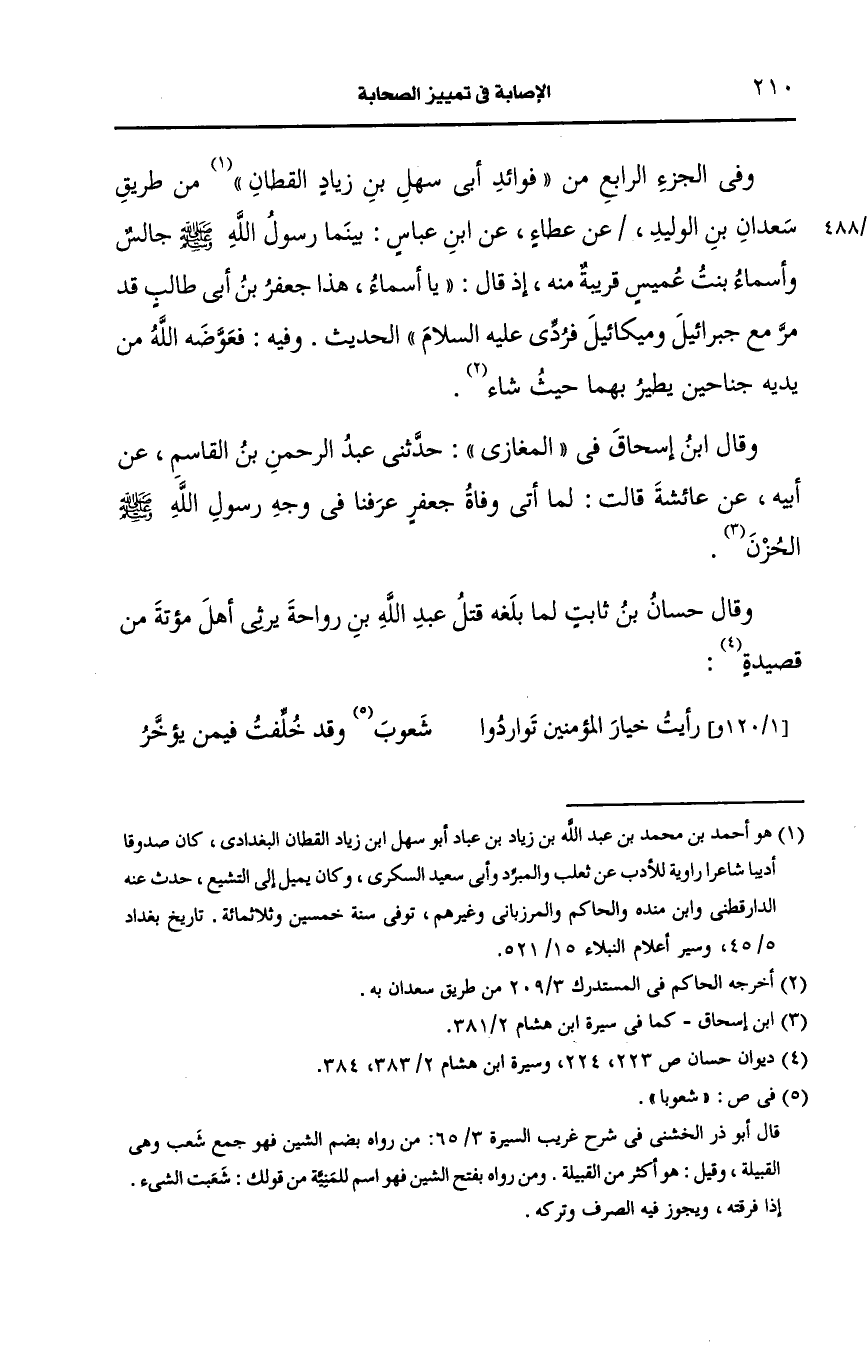 ٢١٠ الإصابة فى تمييز الصحابة
وفى الجزءِ الرابعِ من « فوائدِ أبى سهلِ بنِ زيادٍ القطانِ »(١) من طريقِ
٤٨٨/ سَعدانِ بنِ الوليدِ ، / عن عطاءٍ ، عن ابنِ عباسٍ : بينَما رسولُ اللَّهِ ﷺ جالسٌ
وأسماءُ بنتُ عُميسٍ قريبةٌ منه ، إذ قال : « يا أسماءُ ، هذا جعفرُ بنُ أبى طالبٍ قد
مرَّ مع جبرائيلَ وميكائيلَ فرُدِّى عليه السلامَ » الحديث . وفيه : فعَوَّضَه اللَّهُ من
يديه جناحين يطيرُ بهما حيثُ شاء(٢) .
وقال ابنُ إسحاقَ فى « المغازى » : حدَّثنى عبدُ الرحمنِ بنُ القاسمِ ، عن
أبيه ، عن عائشةَ قالت : لما أتى وفاةُ جعفرٍ عرَفنا فى وجهِ رسولِ اللَّهِ ﷺ
الحُزْنَ(٣) .
وقال حسانُ بنُ ثابتٍ لما بلَغه قتلُ عبدِ اللَّهِ بنِ رواحةَ يرثِى أهلَ مؤتةَ من
قصيدةٍ(٤) :
[١٢٠/١و] رأيتُ خيارَ المؤمنين تَواردُوا شَعوبَ(٥) وقد خُلِّفتُ فيمن يؤخَّرُ
(١) هو أحمد بن محمد بن عبد اللَّه بن زياد بن عباد أبو سهل ابن زياد القطان البغدادى ، كان صدوقا
أديبا شاعرا راوية للأدب عن ثعلب والمبرِّد وأبى سعيد السكرى ، وكان يميل إلى التشيع ، حدث عنه
الدارقطنى وابن منده والحاكم والمرزبانى وغيرهم ، توفى سنة خمسين وثلاثمائة . تاريخ بغداد
٤٥/٥، وسير أعلام النبلاء ٥٢١/١٥.
(٢) أخرجه الحاكم فى المستدرك ٢٠٩/٣ من طريق سعدان به .
(٣) ابن إسحاق - كما فى سيرة ابن هشام ٣٨١/٢.
(٤) ديوان حسان ص ٢٢٣، ٢٢٤، وسيرة ابن هشام ٣٨٣/٢، ٣٨٤.
(٥) فى ص : « شعوبا » .
قال أبو ذر الخشنى فى شرح غريب السيرة ٦٥/٣: من رواه بضم الشين فهو جمع شَعب وهى
القبيلة ، وقيل : هو أكثر من القبيلة . ومن رواه بفتح الشين فهو اسم للمَنِيَّة من قولك : شَعَبت الشىء .
إذا فرقته ، ويجوز فيه الصرف وتركه .